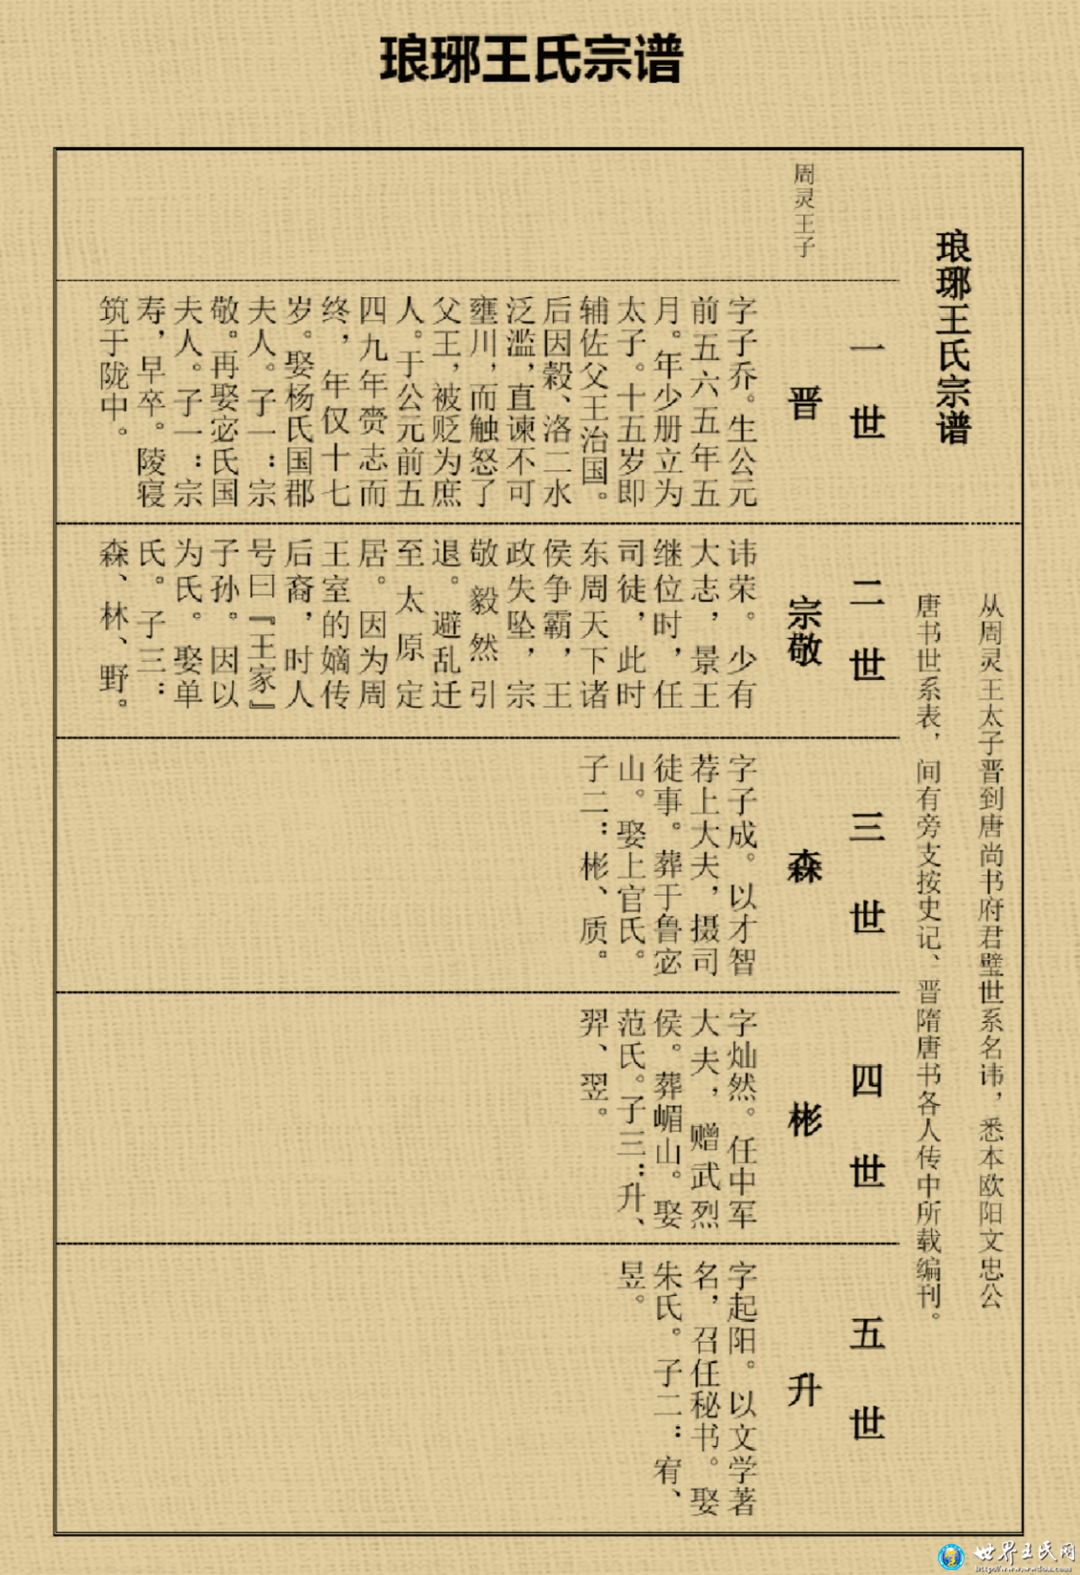 琅琊王氏宗谱
琅琊王氏宗谱
从周灵王太子晋到唐尚书府君璧世系名讳，悉本欧阳文忠公
唐书世系表，间有旁支按史记、晋隋唐书各人传中所载编刊。
一世
周灵王子
晋
字子乔。生公元
前五六五年五
月。年少册立为
太子。十五岁即
辅佐父王治国。
后因榖、洛二水
泛滥，直谏不可
壅川，而触怒了
父王，被贬为庶
人。于公元前五
四九年赍志而
终，年仅十七
岁。娶杨氏国郡
夫人。子一：宗
敬。再娶宓氏国
夫人。子一：宗
寿，早卒。陵寝
筑于陇中。
二世
宗敬
讳荣。少有
大志，景王
继位时，任
司徒，此时
东周天下诸
侯争霸，王
政失坠，宗
敬毅然引
退。避乱迁
至太原定
居。因为周
王室的嫡传
后裔，时人
号曰『王家』
子孙。因以
为氏。娶单
氏。子三：
森、林、野。
三世
森
字子成。以才智
荐上大夫，摄司
徒事。葬于鲁宓
山。娶上官氏。
子二：彬、质。
四世
彬
字灿然。任中军
大夫，赠武烈
侯。葬嵋山。娶
范氏。子三：升、
羿、翌。
五世
升
字起阳。以文学著
名，召任秘书。娶
朱氏。子二：宥、
昱。
世界王氏网